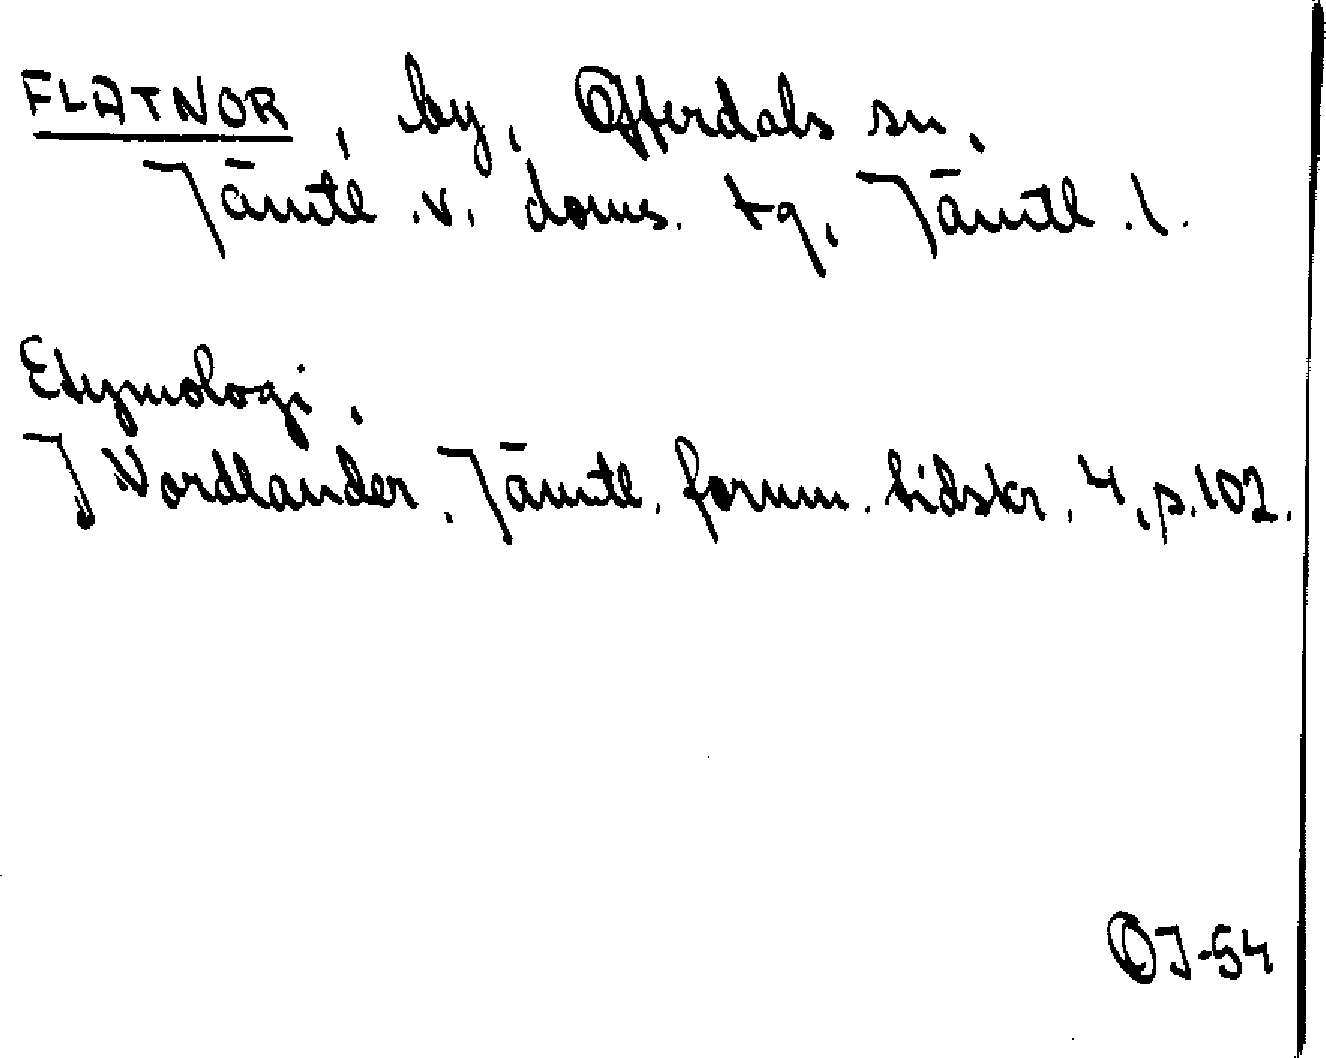 FLATNOR, by, Offerdals sn,
Jämtl. v. doms. tg, Jämtl. l.
Etymologi.
J Nordlander. Jämtl. fornm. tidskr. 4, p. 102.
OJ-54